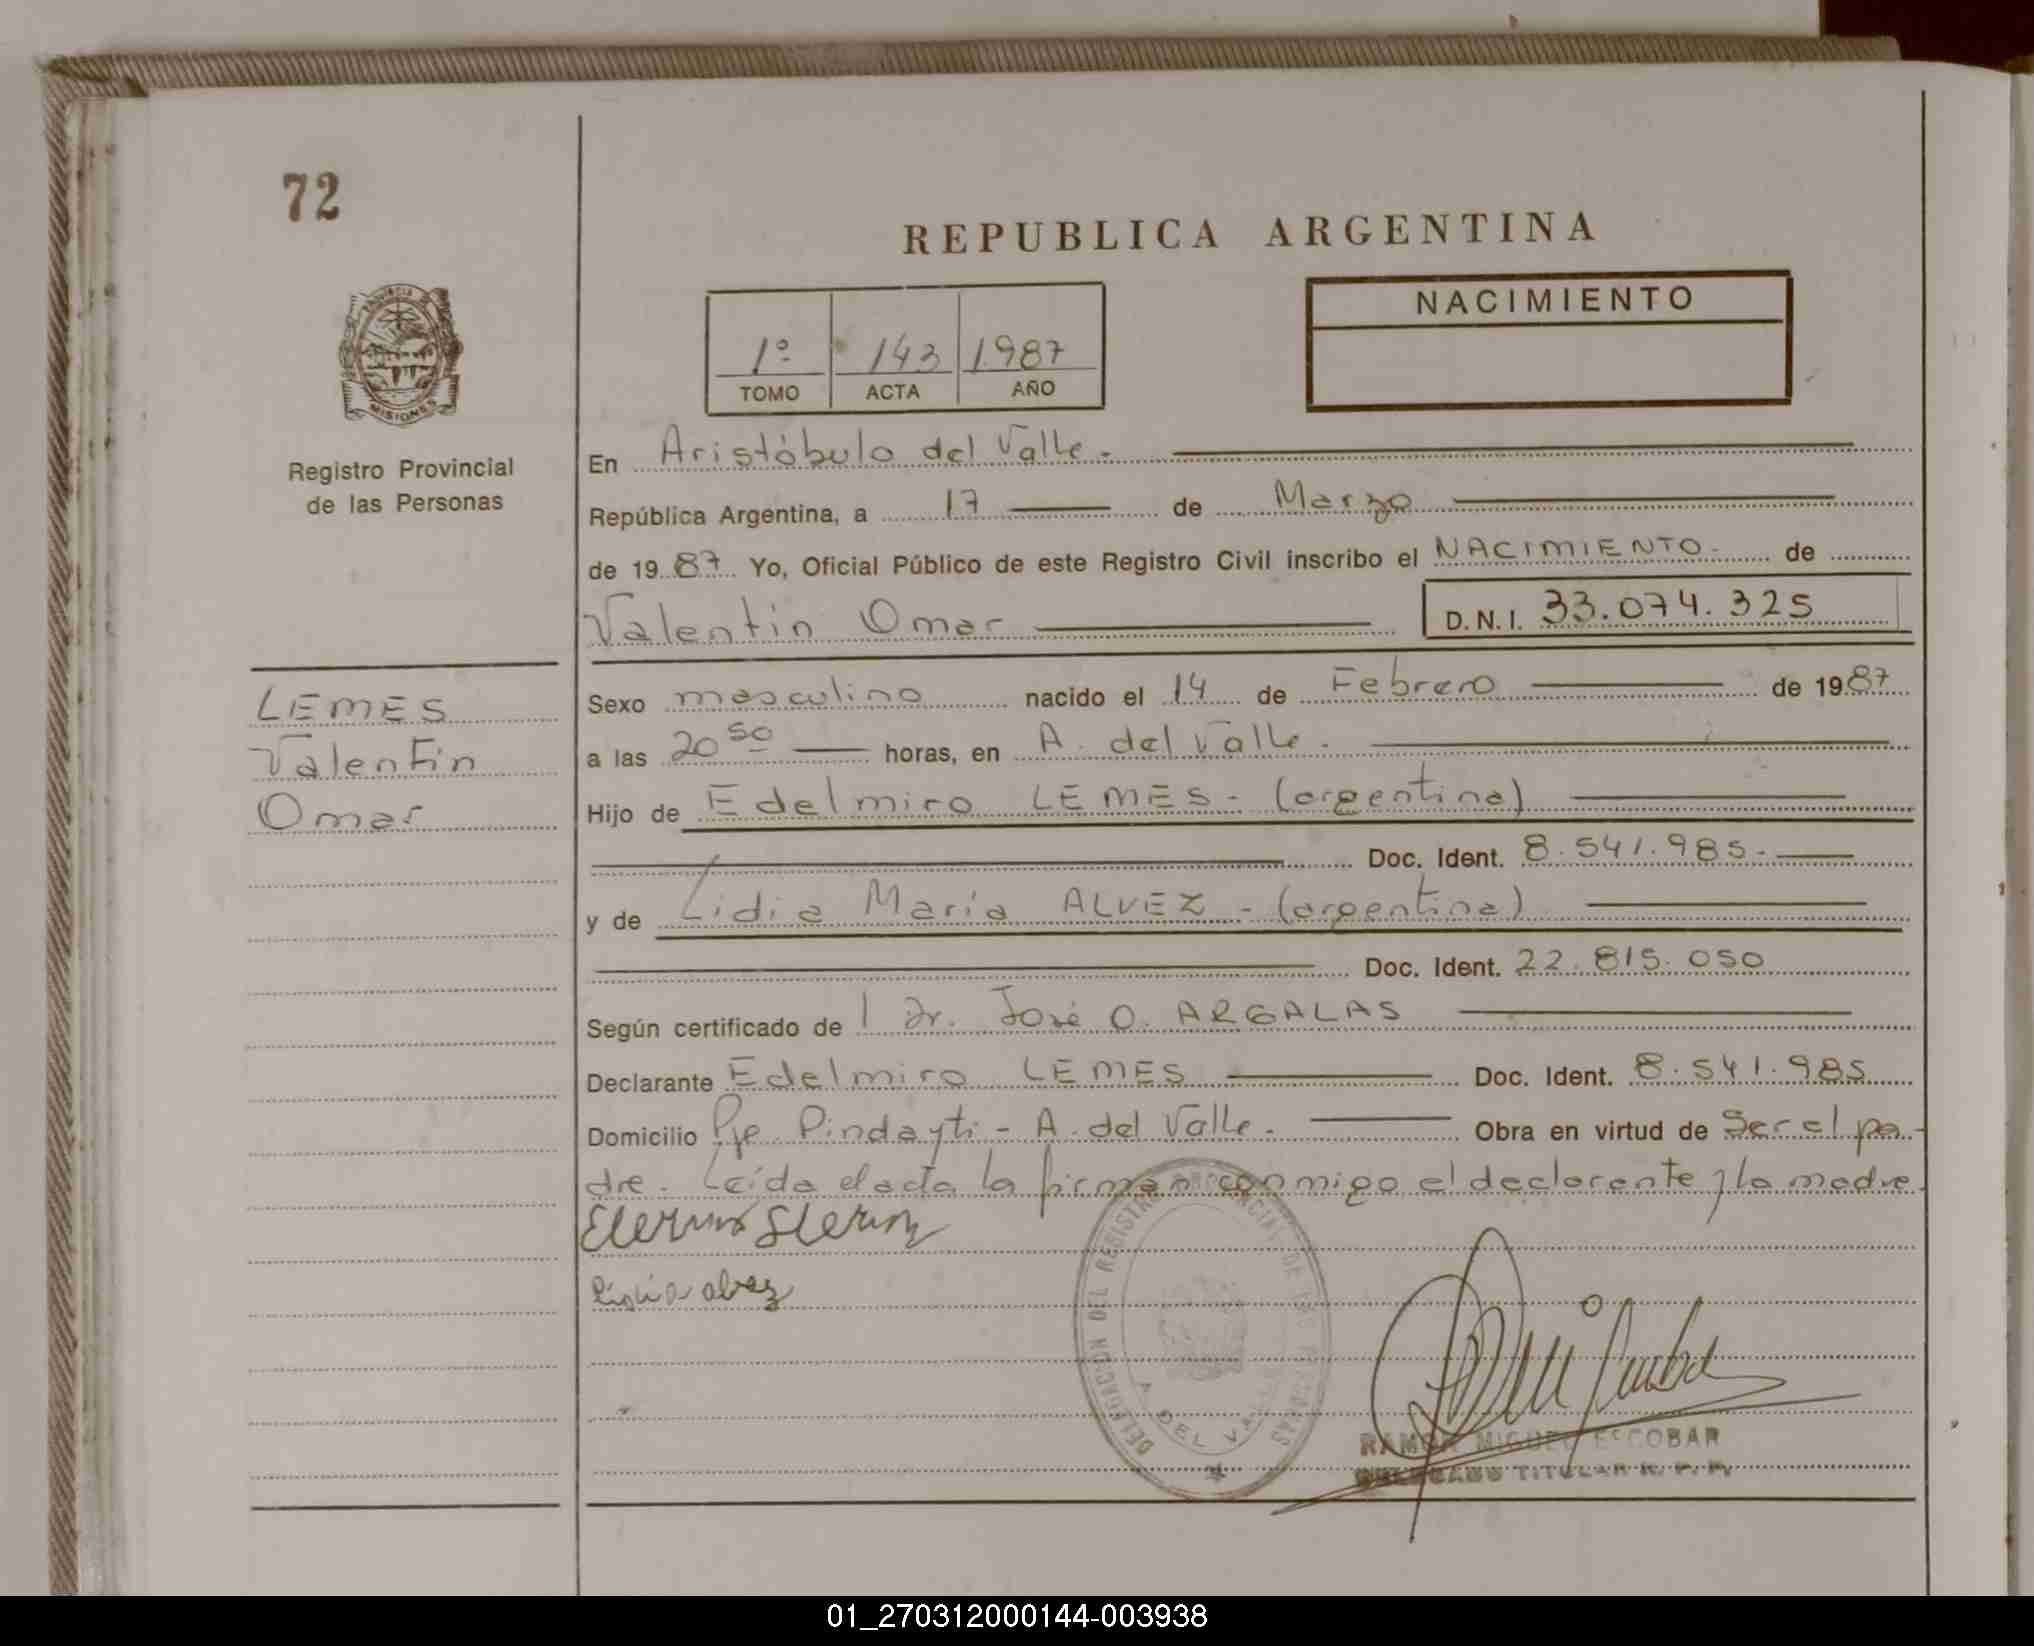 72
REPUBLICA ARGENTINA
PROVINCIA DE
MISIONES
Registro Provincial
de las Personas
1º 143 1987
TOMO ACTA AÑO
NACIMIENTO
En Aristóbulo del Valle.
República Argentina, a 17 de Marzo
de 1987 Yo, Oficial Público de este Registro Civil inscribo el NACIMIENTO. de
Valentin Omar D.N.I. 33.074.325
LEMES
Valentin
Omar
Sexo masculino nacido el 14 de Febrero de 1987
a las 20 50 horas, en A. del Valle.
Hijo de Edelmiro LEMES - (argentina)
Doc. Ident. 8.541.985.
y de Lidia María ALVEZ - (argentina)
Doc. Ident. 22.815.050
Según certificado de Dr. José O. ARGALAS
Declarante Edelmiro LEMES Doc. Ident. 8.541.985
Domicilio Pje. Pindayti - A. del Valle. Obra en virtud de Ser el pa-
dre. Leída el acta la firman conmigo el declarante y la madre.
alvez
DELEGACION DEL REGISTRO PROVINCIAL DE LAS PERSONAS
A. DEL VALLE
RAMON MIGUEL ESCOBAR
DELEGADO TITULAR R. P. P.
01_270312000144-003938